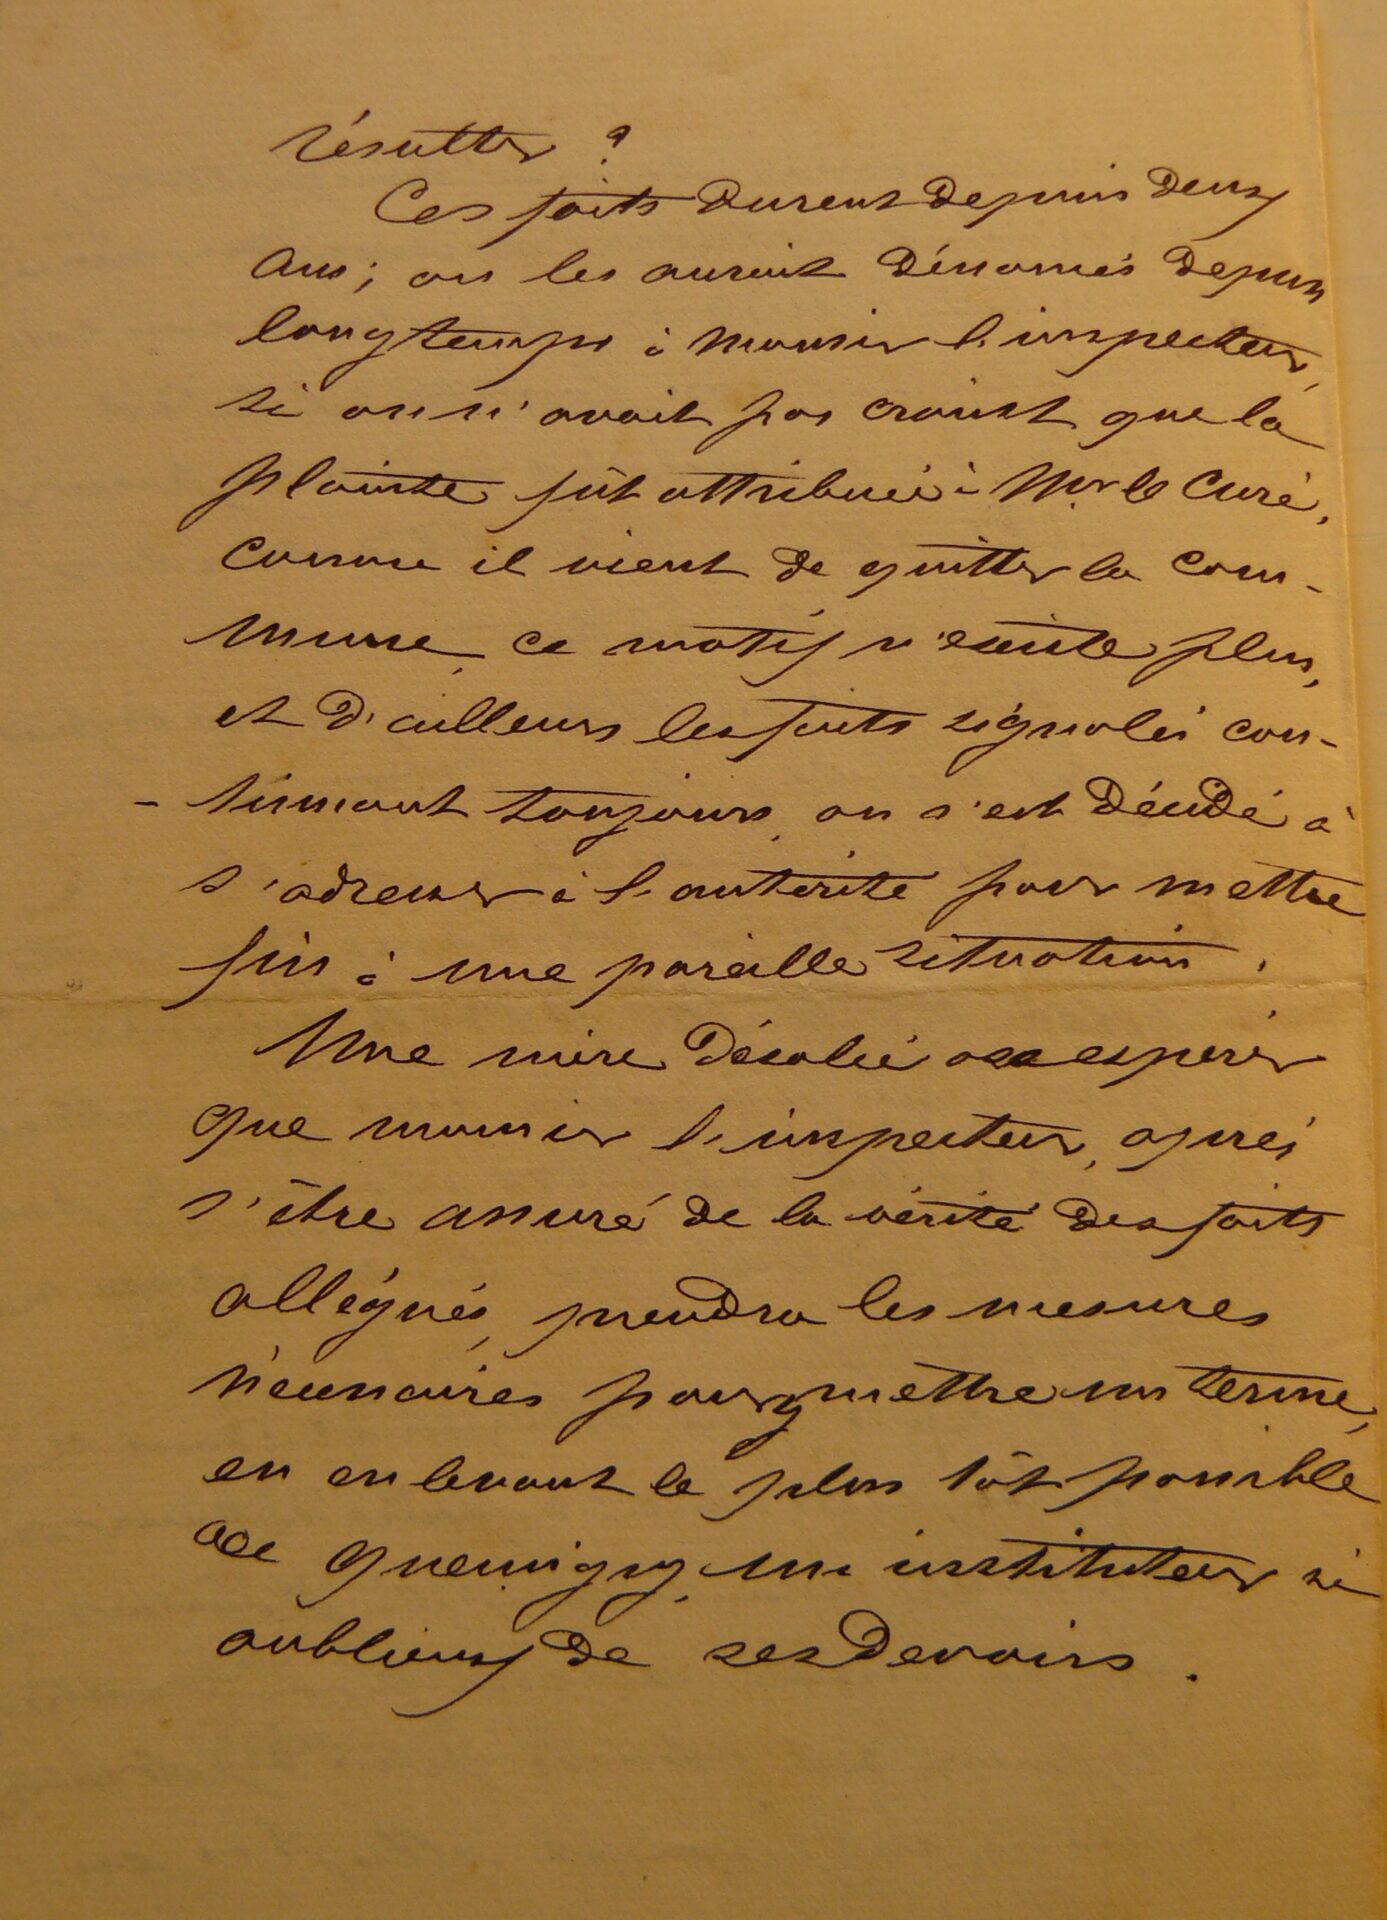 résulter ?
Ces faits durent depuis deux
ans ; on les aurait dénoncés depuis
longtemps à monsieur l'inspecteur,
si on n'avait pas craint que la
plainte fût attribuée à Mr le Curé,
comme il vient de quitter la com-
mune, ce motif n'existe plus,
et d'ailleurs les faits signalés con-
-tinuant toujours, on s'est décidé à
s'adresser à l'autorité pour mettre
fin à une pareille situation.
Une mère désolée ose espérer
que monsieur l'inspecteur, après
s'être assuré de la vérité des faits
allégués, prendra les mesures
nécessaires pour y mettre un terme,
en enlevant le plus tôt possible
de Quemigny, un instituteur si
oublieux de ses devoirs.